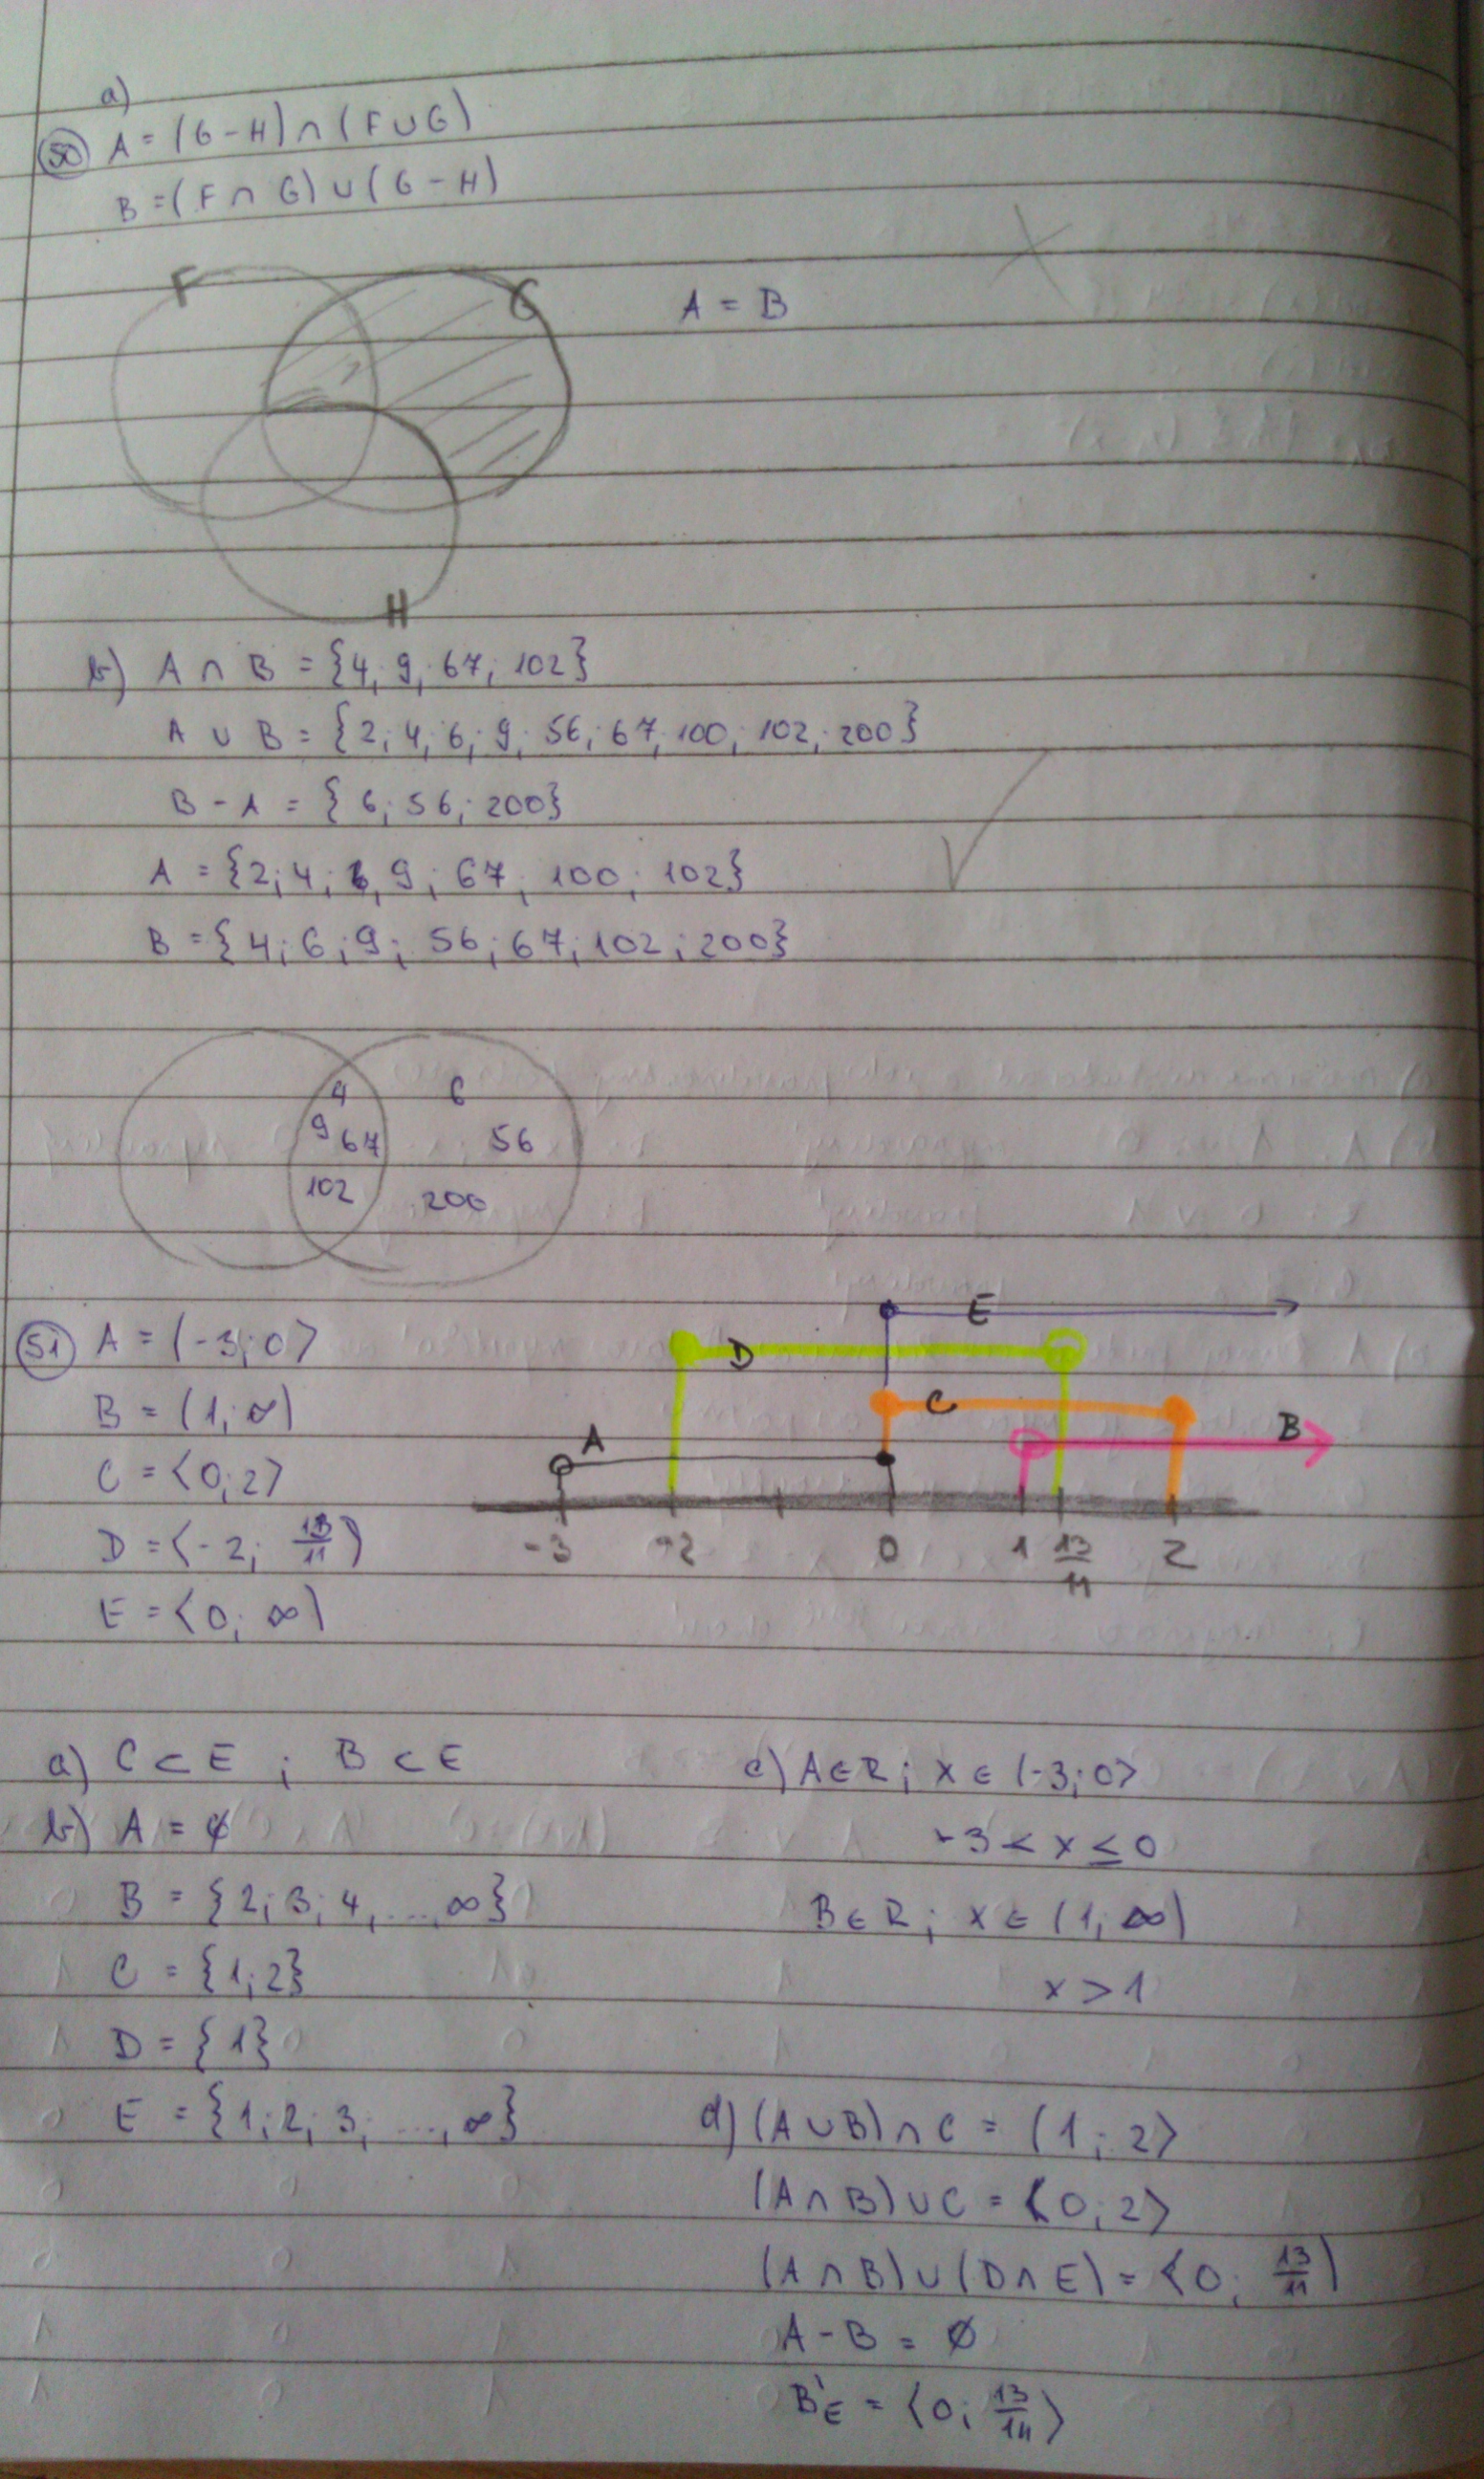 a)
50 A = (G - H) ∩ (F ∪ G)
B = (F ∩ G) ∪ (G - H)
F
G
A = B
H
b) A ∩ B = {4; 9; 67; 102}
A ∪ B = {2; 4; 6; 9; 56; 67; 100; 102; 200}
B - A = {6; 56; 200}
A = {2; 4; 9; 67; 100; 102}
B = {4; 6; 9; 56; 67; 102; 200}
4 6
9 67 56
102 200
51 A = (-3; 0⟩
B = (1; ∞)
C = ⟨0; 2⟩
D = ⟨-2; 13/11)
E = ⟨0; ∞)
E
D
C
B
A
-3 -2 0 1 13/11 2
a) C ⊂ E ; B ⊂ E
b) A = ∅
B = {2; 3; 4, ..., ∞}
C = {1; 2}
D = {1}
E = {1; 2; 3; ..., ∞}
c) A ∈ R; x ∈ (-3; 0⟩
-3 < x ≤ 0
B ∈ R; x ∈ (1; ∞)
x > 1
d) (A ∪ B) ∩ C = (1; 2⟩
(A ∩ B) ∪ C = ⟨0; 2⟩
(A ∩ B) ∪ (D ∩ E) = ⟨0; 13/11)
A - B = ∅
B'E = ⟨0; 13/11⟩